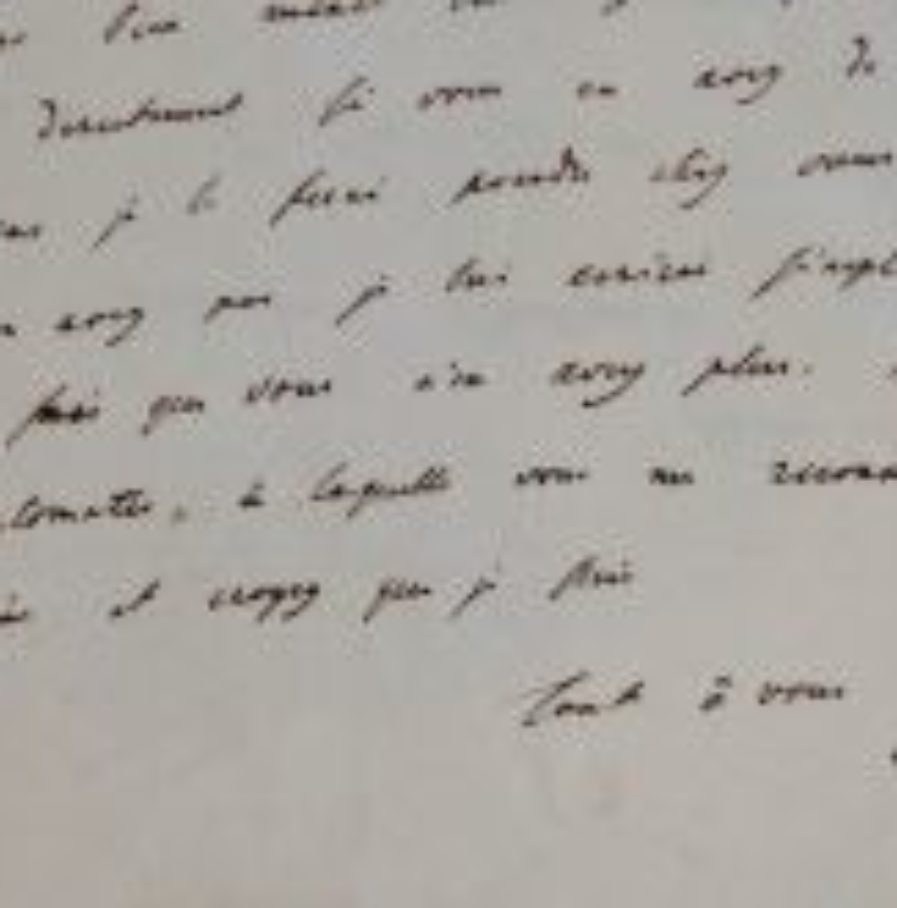 bien
directement si vous en avez de
je le ferai prendre chez vous
avez pas je lui écrirai simpl
que vous n'en avez plus.
tomates, à laquelle vous me reconn
et croyez que je suis
Tout à vous